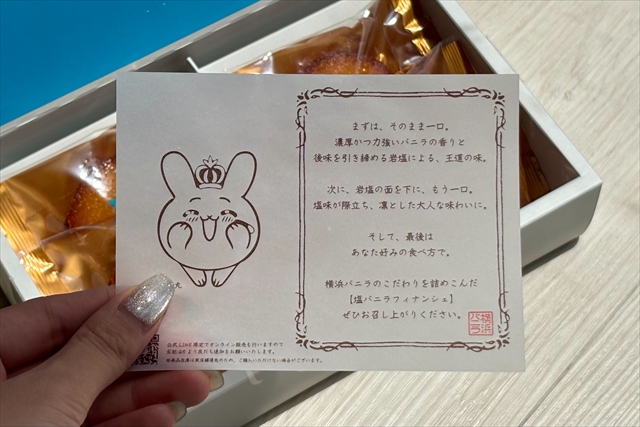 まずは、そのまま一口。
濃厚かつ力強いバニラの香りと
後味を引き締める岩塩による、王道の味。
次に、岩塩の面を下に、もう一口。
塩味が際立ち、凛とした大人な味わいに。
そして、最後は
あなた好みの食べ方で。
横浜バニラのこだわりを詰めこんだ
【塩バニラフィナンシェ】
ぜひお召し上がりください。
横浜バニラ
丸
公式LINE限定でオンライン販売を行いますので
左記QRより友だち追加をお願いいたします。